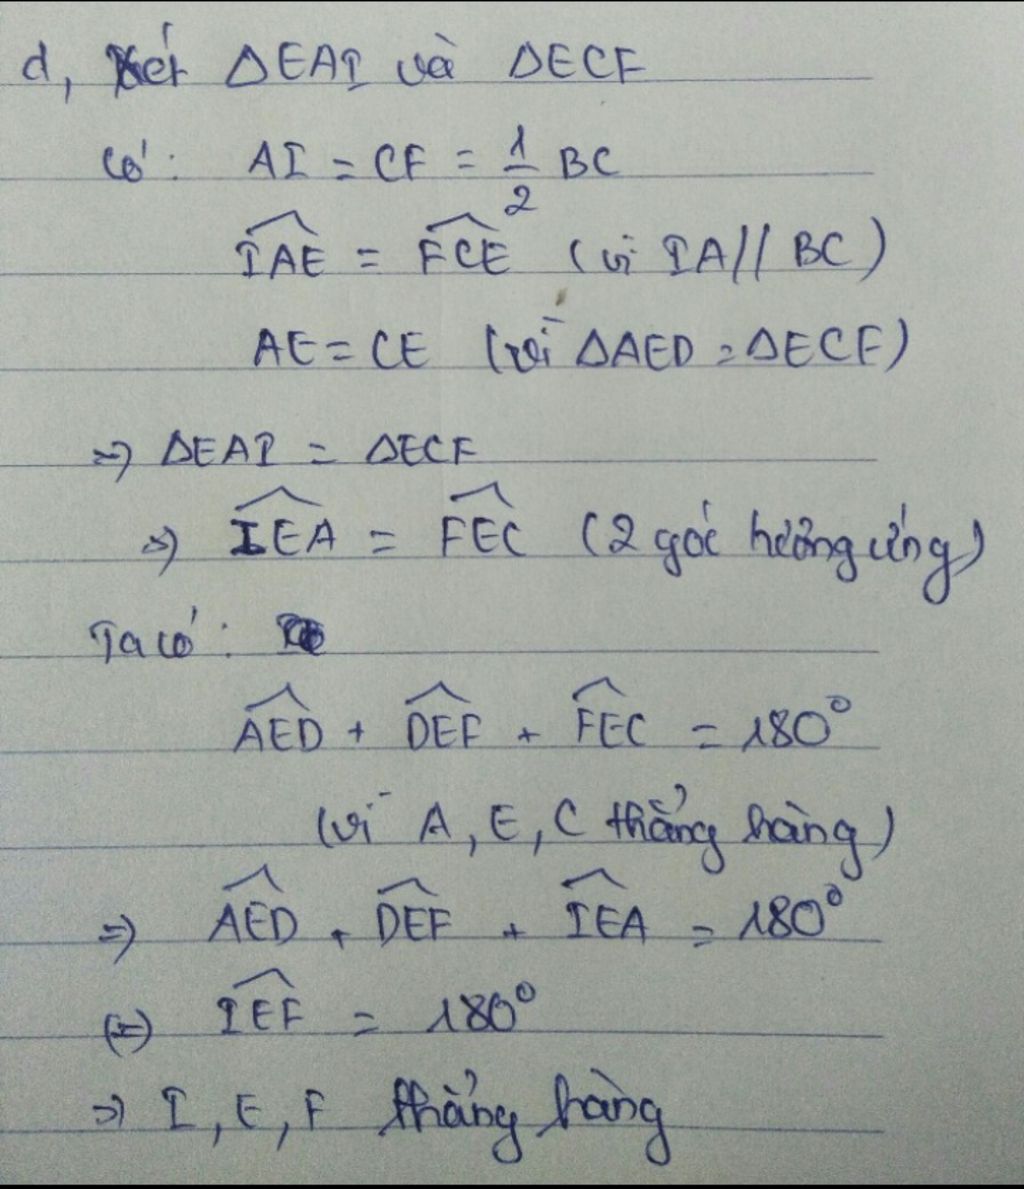 d, Xét ΔEAI và ΔECF
Có: AI = CF = 1/2 BC
IAE = FCE (vì IA // BC)
AE = CE (vì ΔAED = ΔECF)
=> ΔEAI = ΔECF
=> IEA = FEC (2 góc tương ứng)
Ta có:
AED + DEF + FEC = 180°
(vì A, E, C thẳng hàng)
=> AED + DEF + IEA = 180°
(=) IEF = 180°
=> I, E, F thẳng hàng